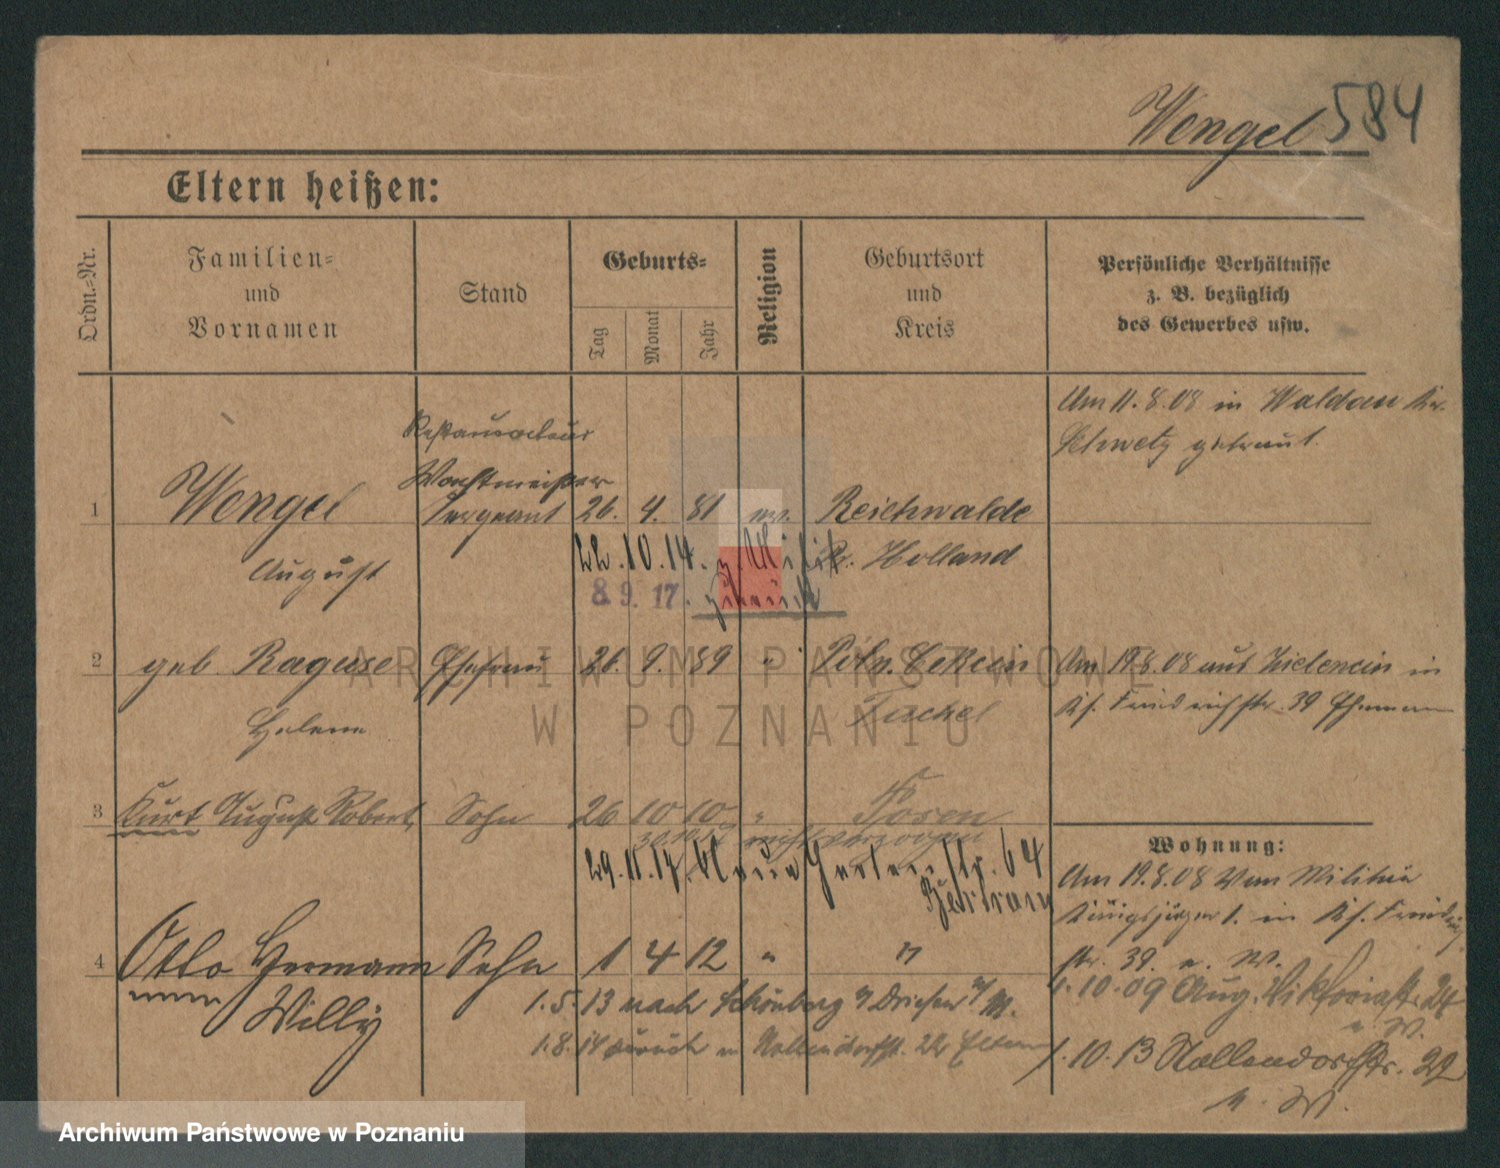 Wengel 584
Eltern heißen:
Ordn.-Nr.
Familien-
und
Vornamen
Stand
Geburts-
Tag
Monat
Jahr
Religion
Geburtsort
und
Kreis
Persönliche Verhältnisse
z. B. bezüglich
des Gewerbes usw.
Am 11.8.08 in Waldau Kr.
Schwetz getraut.
Restaurateur
Wachtmeister
1 Wengel Sergeant 26. 4. 81 ev. Reichwalde
August
22.10.14. z. Milit. Kr. Holland
8.9.17. zurück
2 geb. Raguse Ehefrau 26. 9. 89 " Poln. Cekzin
Helene Tuchel
Am 19.8.08 aus Zielencin in
39 Ehemann
3 Kurt August Robert, Sohn 26 10 10 " Posen
nicht verzogen
29.11.17. Gartenstr. 64
Wohnung:
Am 19.8.08 Vom Militär
Königsjäger 1. in
str. 39. e. W.
4 Otto Hermann Sohn 1 4 12 " "
Willy
1.5.13 nach Schönberg Driesen N/M.
1.8.14 zurück n Nollendorfstr. 22 Eltern
1.10.09 Aug. Viktoriastr. 24
e W.
1.10.13 Nollendorfstr. 22
e. W.
ARCHIWUM PAŃSTWOWE
W POZNANIU
Archiwum Państwowe w Poznaniu